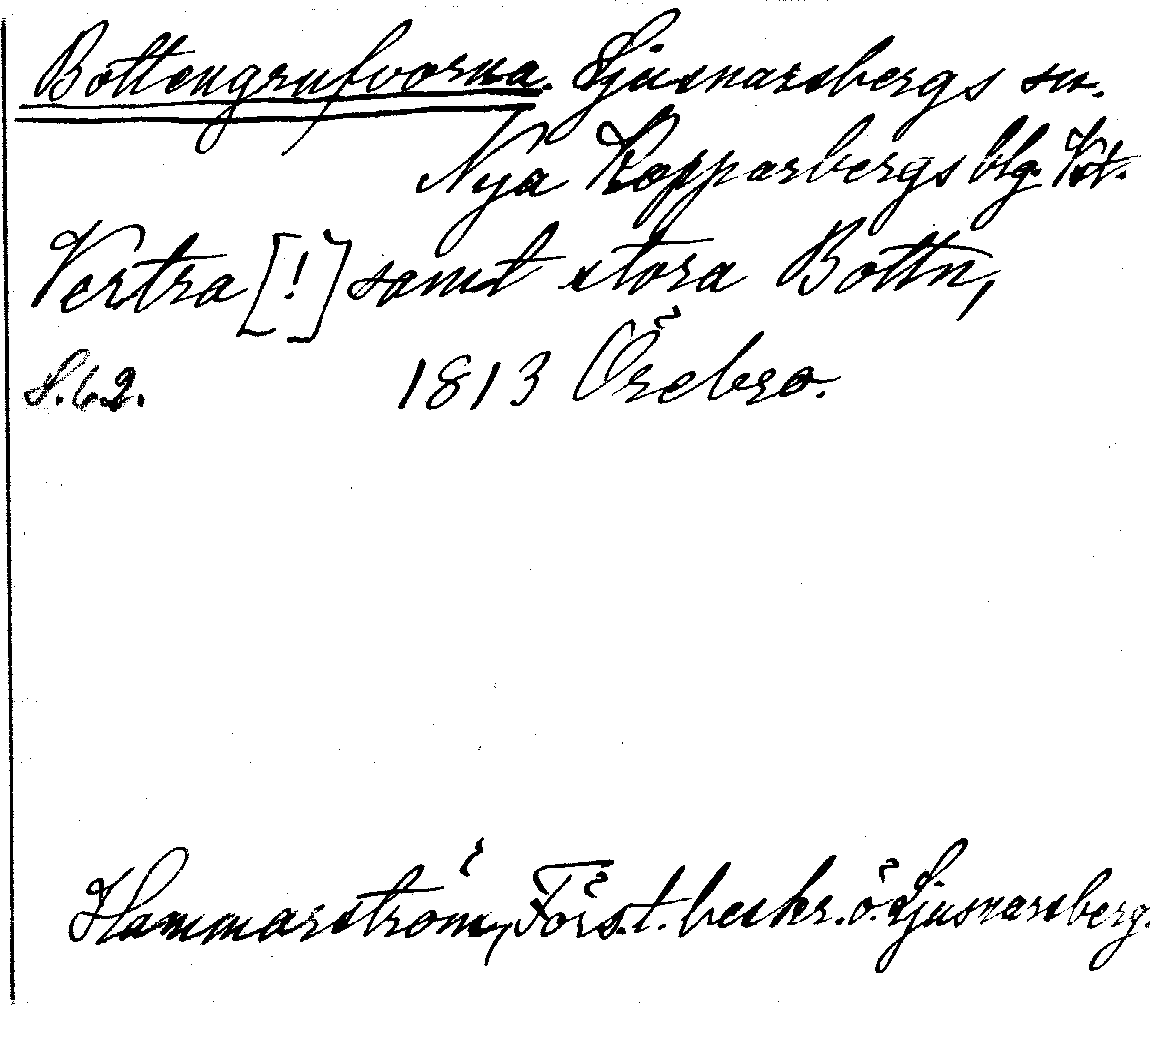 Bottengrufvorna. Ljusnarsbergs sn.
Nya Kopparbergs blg. Vst.
Vertra [!] samt stora Bottn,
S. 62. 1813 Örebro.
Hammarström, Förs.t. beskr. ö. Ljusnarsberg.